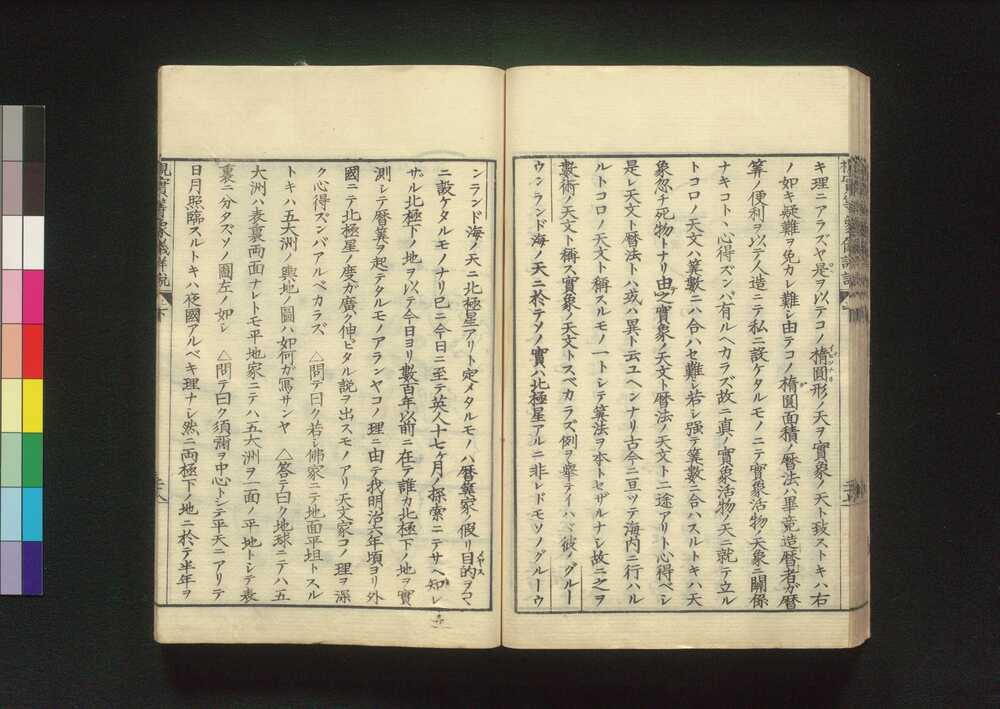 キ理ニアラズヤ是ヲ以テコノ楕圓形ノ天ヲ實象ノ天ト致ストキハ右
ノ如キ疑難ヲ免カレ難シ由テコノ楕圓面積ノ曆法ハ畢竟造曆者ガ曆
筭ノ便利ヲ以テ人造ニテ私ニ設ケタルモノニテ實象活物ノ天象ニ關係
ナキコト心得ズンバ有ルヘカラズ故ニ真ノ實象活物ノ天ニ就テ立ル
トコロノ天文ハ筭數ニハ合ハセ難シ若シ強テ筭數ニ合ハスルトキハ天
象忽チ死物トナリ由之實象ノ天文ト曆法ノ天文ト二途アリト心得ベシ
是レ天文ト曆法トハ或ハ異ト云ユヘンナリ古今ニ亘ツテ海内ニ行ハル
ルトコロノ天文ト稱スルモノ一トシテ筭法ヲ本トセザルナシ故ニ之ヲ
數術ノ天文ト稱ス實象ノ天文トスベカラズ例ヲ擧テイハヾ彼ノグルー
ウンランド海ノ天ニ於テソノ實ハ北極星アルニ非レドモソノグルーウ
ンランド海ノ天ニ北極星アリト定メタルモノハ曆筭家ノ假リ目的ヲコマ
ニ設ケタルモノナリ已ニ今日ニ至テ英人十七ヶ月ノ探索ニテサヘ知レ
ザル北極下ノ地ヲ以テ今日ヨリ數百年以前ニ在テ誰カ北極下ノ地ヲ實
測シテ曆筭ヲ起テタルモノアランヤコノ理ニ由テ我明治六年頃ヨリ外
國ニテ北極星ノ度ガ廣ク伸ビタル説ヲ出スモノアリ天文家コノ理ヲ深
ク心得ズンバアルベカラズ　△問テ曰ク若シ佛家ニテ地面平坦トスル
トキハ五大洲ノ輿地ノ圖ハ如何ガ寫サンヤ　△答テ曰ク地球ニテハ五
大洲ハ表裏両面ナレトモ平地家ニテハ五大洲ヲ一面ノ平地トシテ表
裏ニ分タズソノ圖左ノ如シ　△問テ曰ク須彌ヲ中心トシテ平天ニアリテ
日月照臨スルトキハ夜國アルベキ理ナシ然ニ両極下ノ地ニ於テ半年ヲ